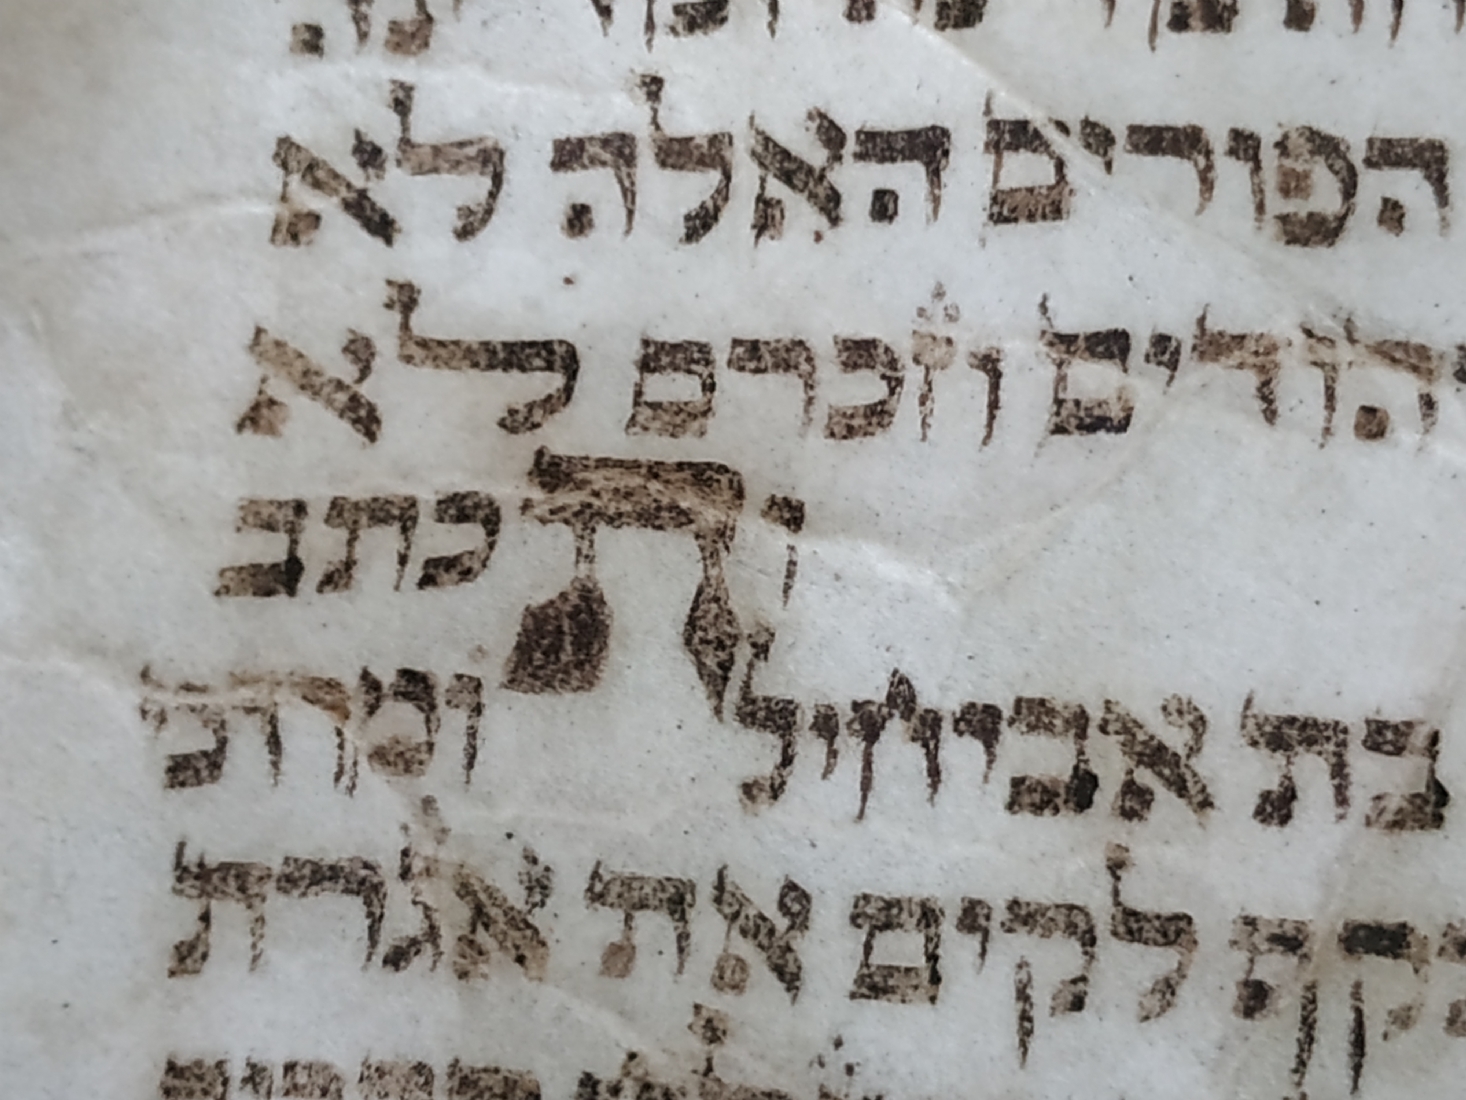 הפורים האלה לא
יהודים וזכרם לא
ותכתב
בת אביחיל ומרדכי
תקף לקים את אגרת